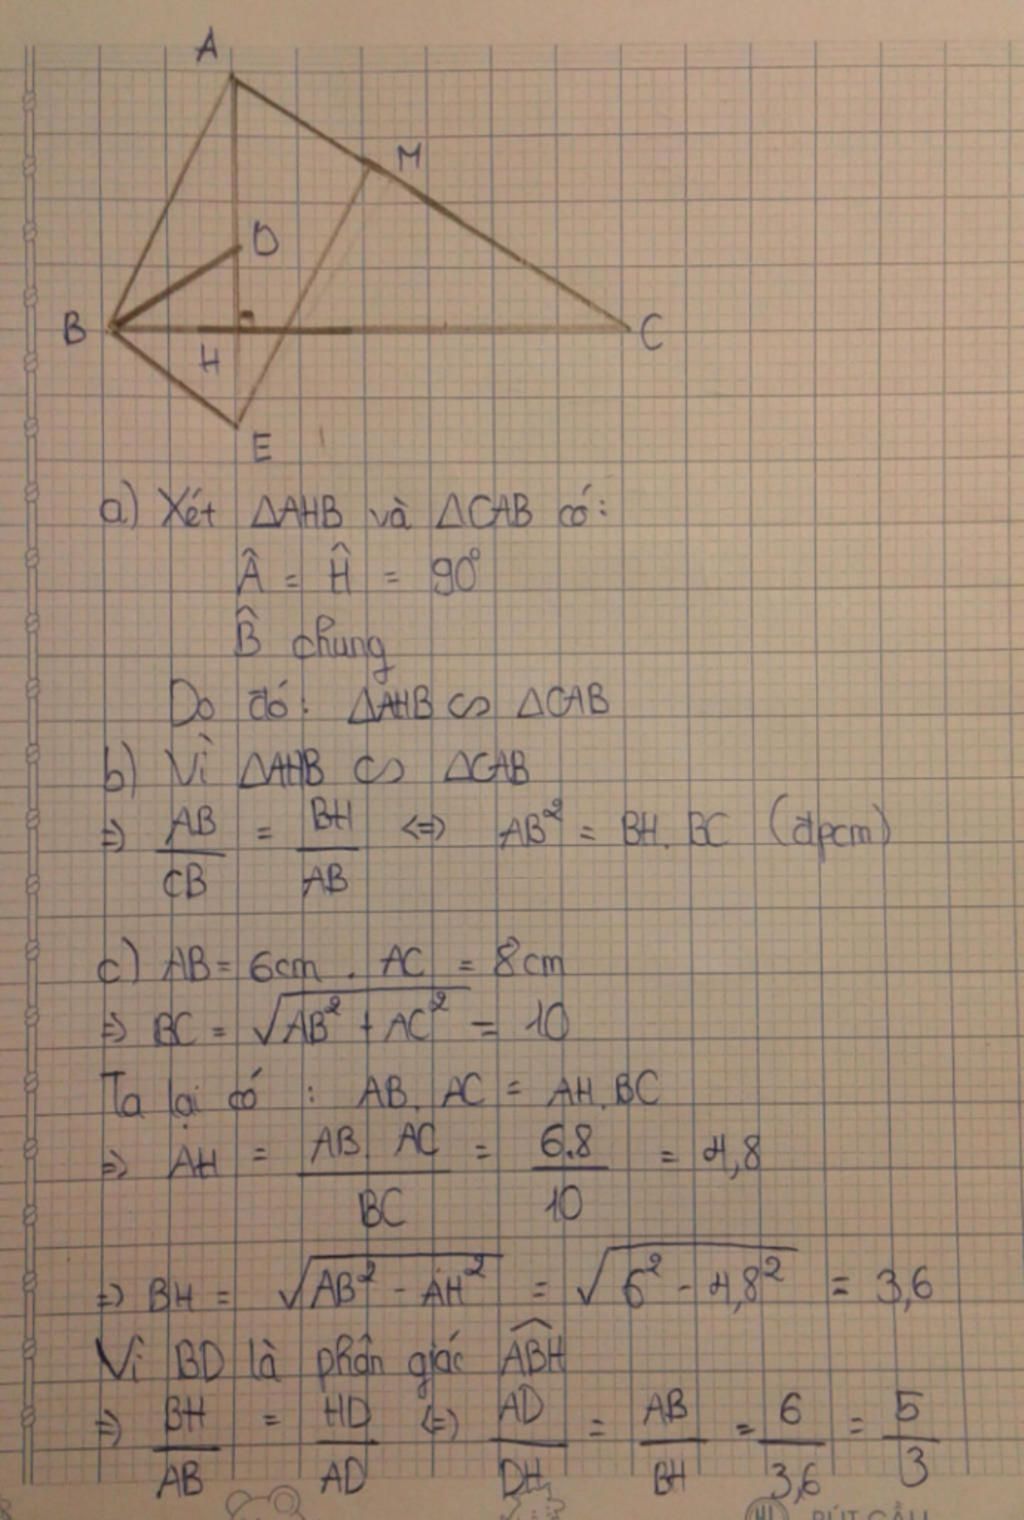 A
M
D
B
H
C
E
a) Xét ΔAHB và ΔCAB có:
Â = Ĥ = 90°
B̂ chung
Do đó: ΔAHB ∽ ΔCAB
b) Vì ΔAHB ∽ ΔCAB
=> AB/CB = BH/AB <=> AB² = BH. BC (đpcm)
c) AB = 6cm . AC = 8cm
=> BC = √(AB² + AC²) = 10
Ta lại có : AB. AC = AH. BC
=> AH = AB. AC/BC = 6.8/10 = 4,8
=> BH = √(AB² - AH²) = √(6² - 4,8²) = 3,6
Vì BD là phân giác ABH
=> BH/AB = HD/AD <=> AD/DH = AB/BH = 6/3,6 = 5/3